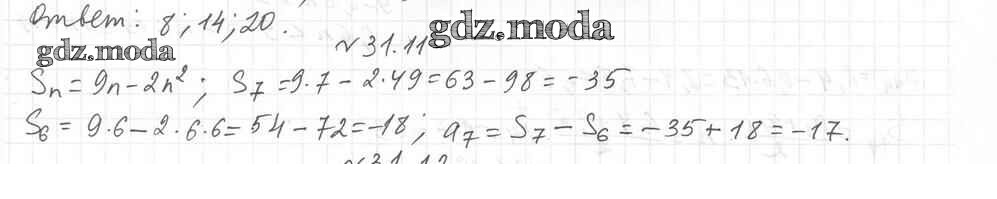 Ответ: 8; 14; 20.
gdz.moda
№31.11
gdz.moda
Sn = 9n - 2n²; S7 = 9·7 - 2·49 = 63 - 98 = -35
S6 = 9·6 - 2·6·6 = 54 - 72 = -18; a7 = S7 - S6 = -35 + 18 = -17.